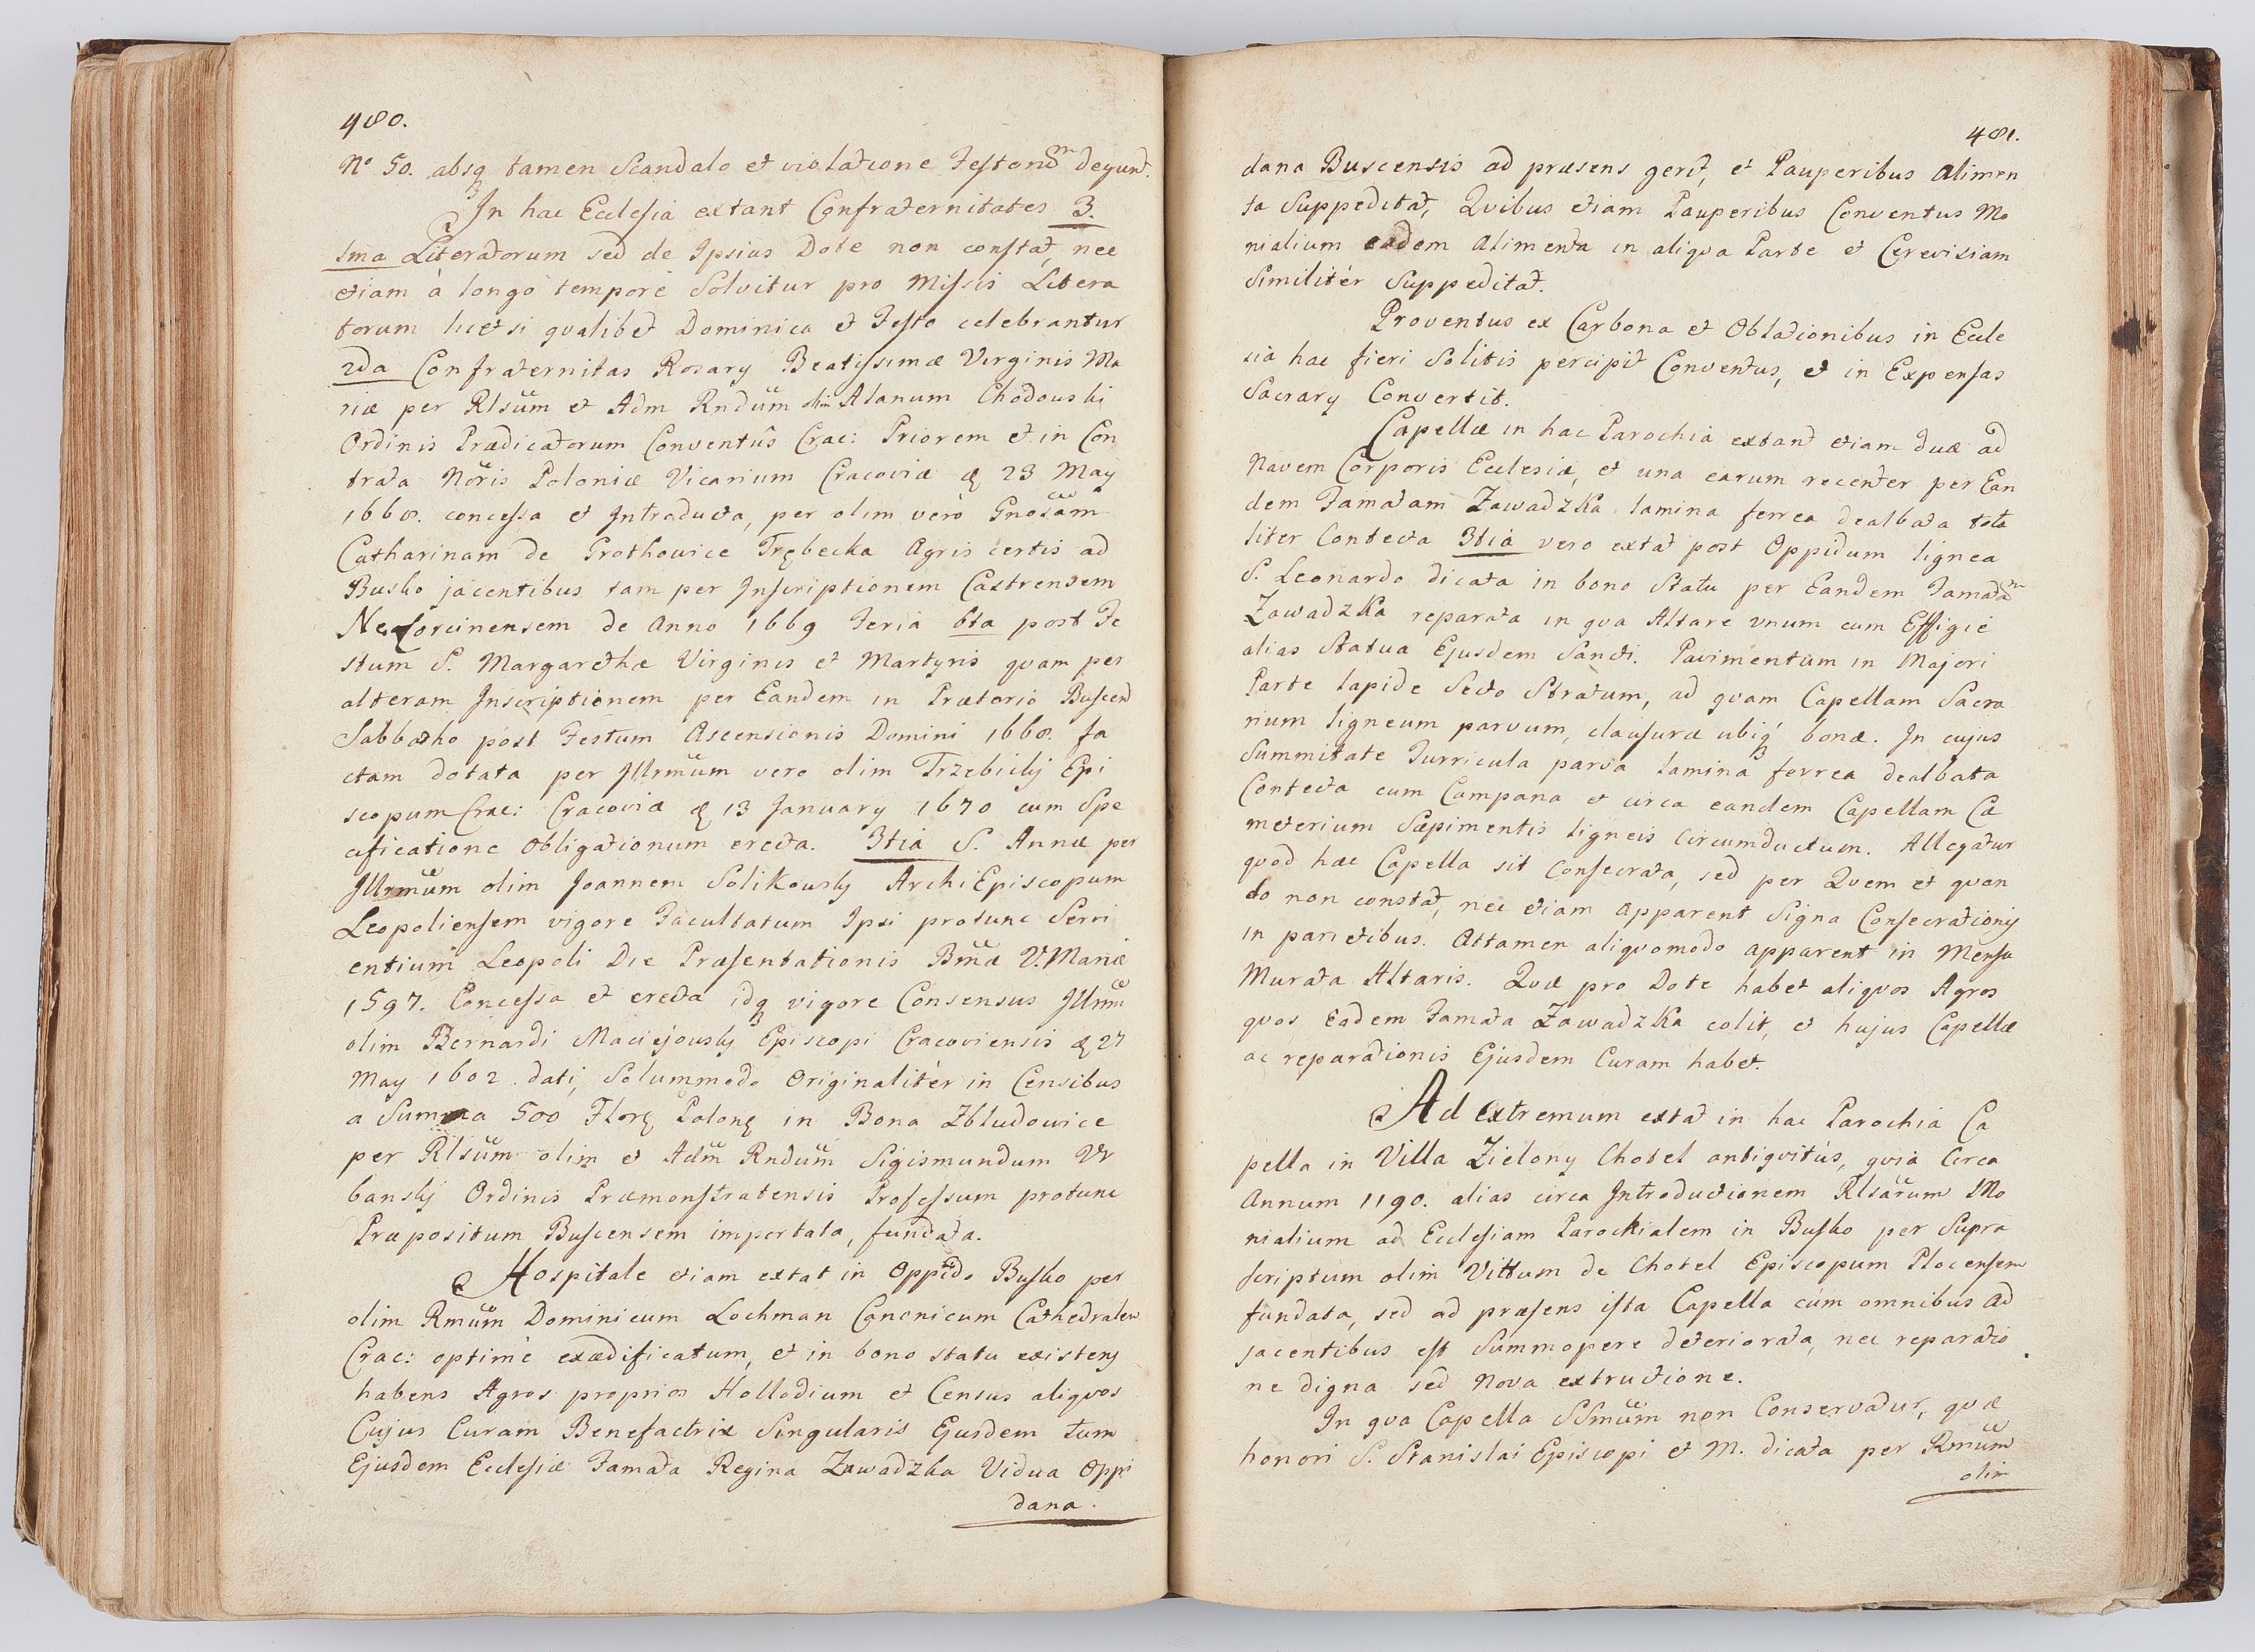 480.
No 50. absq3 tamen Scandalo et violatione Festorũm degunt.
In hac Ecclesia extant Confraternitates 3.
1ma Literatorum sed de Ipsius Dote non constat, nec
etiam à longo tempore Solvitur pro Missis Litera
torum licet si qvalibet Dominica et Festo celebrantur
2da Confraternitas Rosary Beatissimæ Virginis Ma
riæ per Rlsũm et Adm Rndũm olim Alanum Chodouski
Ordinis Prædicatorum Conventûs Crac: Priorem et in Con
trata Nõris Poloniæ Vicarium Cracoviæ 23 May
1668. concessa et Introducta, per olim verò Gnosãm
Catharinam de Prothovice Trębecka Agris certis ad
Busko jacentibus tam per Inscriptionem Castrensem
NeoCorcinensem de Anno 1669 Feria 6ta post Fe
stum S. Margarethæ Virginis et Martyris qvam per
alteram Inscriptionem per Eandem in Prætorio Buscen
Sabbatho post Festum Ascensionis Domini 1668. fa
ctam dotata per Illrmũm vero olim Trzebicky Epi
scopum Crac: Cracoviæ 13 January 1670 cum Spe
cificatione Obligationum erecta. 3tia S. Annæ per
Illrmũm olim Joannem Solikousky ArchiEpiscopum
Leopoliensem vigore Facultatum Ipsi protunc Servi
entium Leopoli Die Præsentationis Bmæ V. Mariæ
1597. Concessa et erecta idq3 vigore Consensus Illrmi
olim Bernardi Maciejousky Episcopi Cracoviensis 27
May 1602 dati, Solummodo Originalitèr in Censibus
a Summa 500 Flor Polon in Bona Zbludowice
per Rlsũm olim et Adm̃ Rndũm Sigismundum Vr
bansky Ordinis Præmonstratensis Professum protunc
Præpositum Buscensem impertata, fundata.
Hospitale etiam extat in Oppido Busko per
olim Rmũm Dominicum Lochman Canonicum Cathedralem
Crac: optimè exædificatum, et in bono statu existens
habens Agros proprios Hallodium et Census aliqvos
Cujus Curam Benefactrix Singularis Ejusdem tum
Ejusdem Ecclesiæ Famata Regina Zawadzka Vidua Oppi
dana.
481.
dana Buscensis ad præsens gerit, et Pauperibus alimen
ta Suppeditat, Qvibus etiam Pauperibus Conventus Mo
nialium eadem Alimenta in aliqva Parte et Cerevisiam
Similitèr Suppeditat.
Proventus ex Carbona et Oblationibus in Eccle
sia hac fieri Solitis percipit Conventus, et in Expensas
Sacrary Convertit.
Capellæ in hac Parochia extant etiam duæ ad
Navem Corporis Ecclesiæ, et una earum recenter per Ean
dem Famatam Zawadzka lamina ferrea dealbata tota
liter Contecta 3tia vero extat post Oppidum lignea
S. Leonardo dicata in bono Statu per Eandem Famatam
Zawadzka reparata in qva Altare vnum cum Effigie
alias Statua Ejusdem Sancti. Pavimentum in Majori
Parte lapide Secto Stratum, ad qvam Capellam Sacra
rium ligneum parvum, clausuræ ubiq3 bonæ. In cujus
Summitate Turricula parva lamina ferrea dealbata
Contecta cum Campana et circa eandem Capellam Cæ
meterium Sæpimentis ligneis Circumductum. Allegatur
qvod hæc Capella sit Consecrata, sed per Qvem et qvan
do non constat, nec etiam apparent Signa Consecrationis
in parietibus. Attamen aliqvomodo apparent in Mensa
Murata Altaris. Qvæ pro Dote habet aliqvos Agros
qvos Eadem Famata Zawadzka colit, et hujus Capellæ
ac reparationis Ejusdem Curam habet.
Ad extremum extat in hac Parochia Ca
pella in Villa Zielony Chotel antiqvitùs, qvia Circa
Annum 1190. alias circa Introductionem Rlsãrum Mo
nialium ad Ecclesiam Parochialem in Busko per Supra
scriptum olim Vittum de Chotel Episcopum Plocensem
fundata, sed ad præsens ista Capella cum omnibus ad
jacentibus est Summopere deteriorata, nec reparatio
ne digna sed Nova extructione.
In qva Capella SSmũm non Conservatur, qvæ
honori S. Stanislai Episcopi et M. dicata per Rmũm
olim